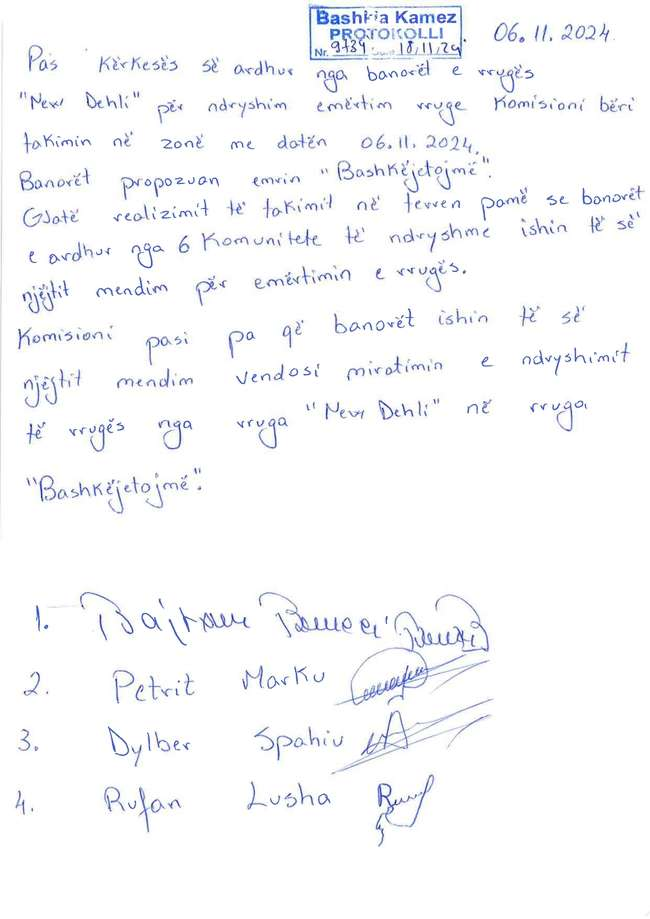 Bashkia Kamez
PROTOKOLLI
Nr. 9734 18/11/24.
06.11.2024
Pas kërkesës së ardhur nga banorët e rrugës
"New Dehli" për ndryshim emërtim rruge Komisioni bëri
takimin në zonë me datën 06.11.2024.
Banorët propozuan emrin "Bashkëjetojmë".
Gjatë realizimit të takimit në terren pamë se banorët
e ardhur nga 6 Komunitete të ndryshme ishin të së
njëjtit mendim për emërtimin e rrugës.
Komisioni pasi pa që banorët ishin të së
njëjtit mendim vendosi miratimin e ndryshimit
të rrugës nga rruga "New Dehli" në rruga
"Bashkëjetojmë".
1. Bajram
2. Petrit Marku
3. Dylber Spahiu
4. Rufan Lusha